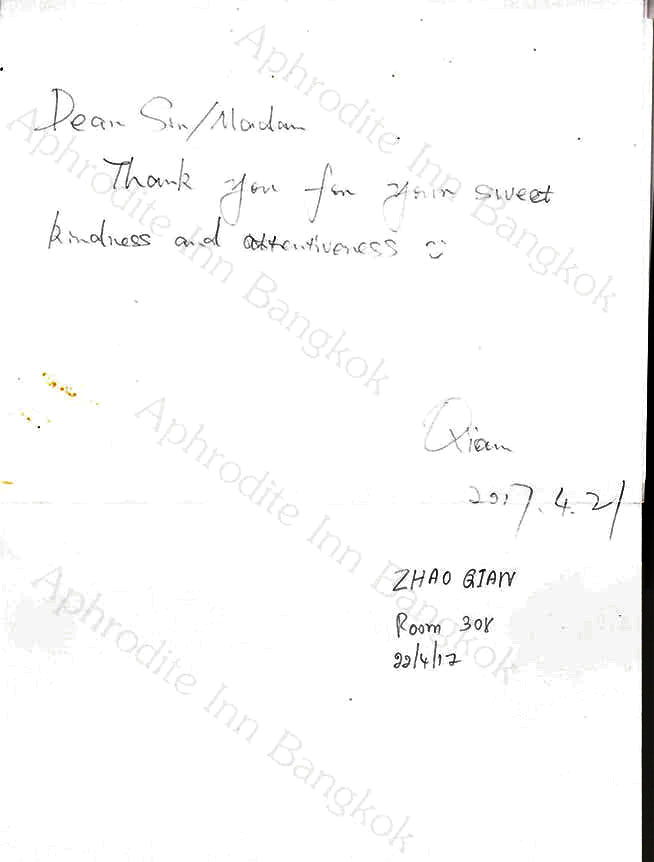 Dear Sir/Madam
Thank you for your sweet
kindness and attentiveness
Qian
2017.4.21
ZHAO QIAN
Room 308
22/4/17
Aphrodite Inn Bangkok
Aphrodite Inn Bangkok
Aphrodite Inn Bangkok
Aphrodite Inn Bangkok